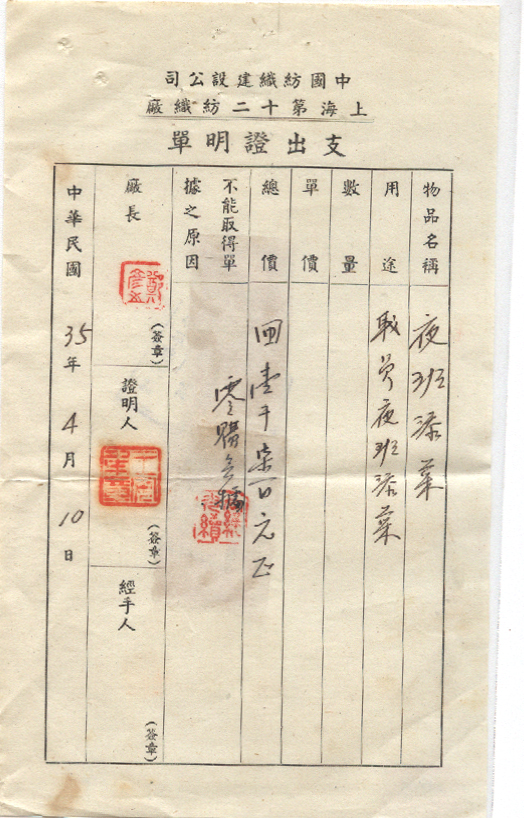 中國紡織建設公司
上海第十二紡織廠
支出證明單
物品名稱 夜班添菜
用途 職員夜班添菜
數量
單價
總價 壹千柒百元正
不能取得單
據之原因
零購無
廠長 (簽章)
證明人 (簽章)
經手人 (簽章)
中華民國 35年 4月 10日